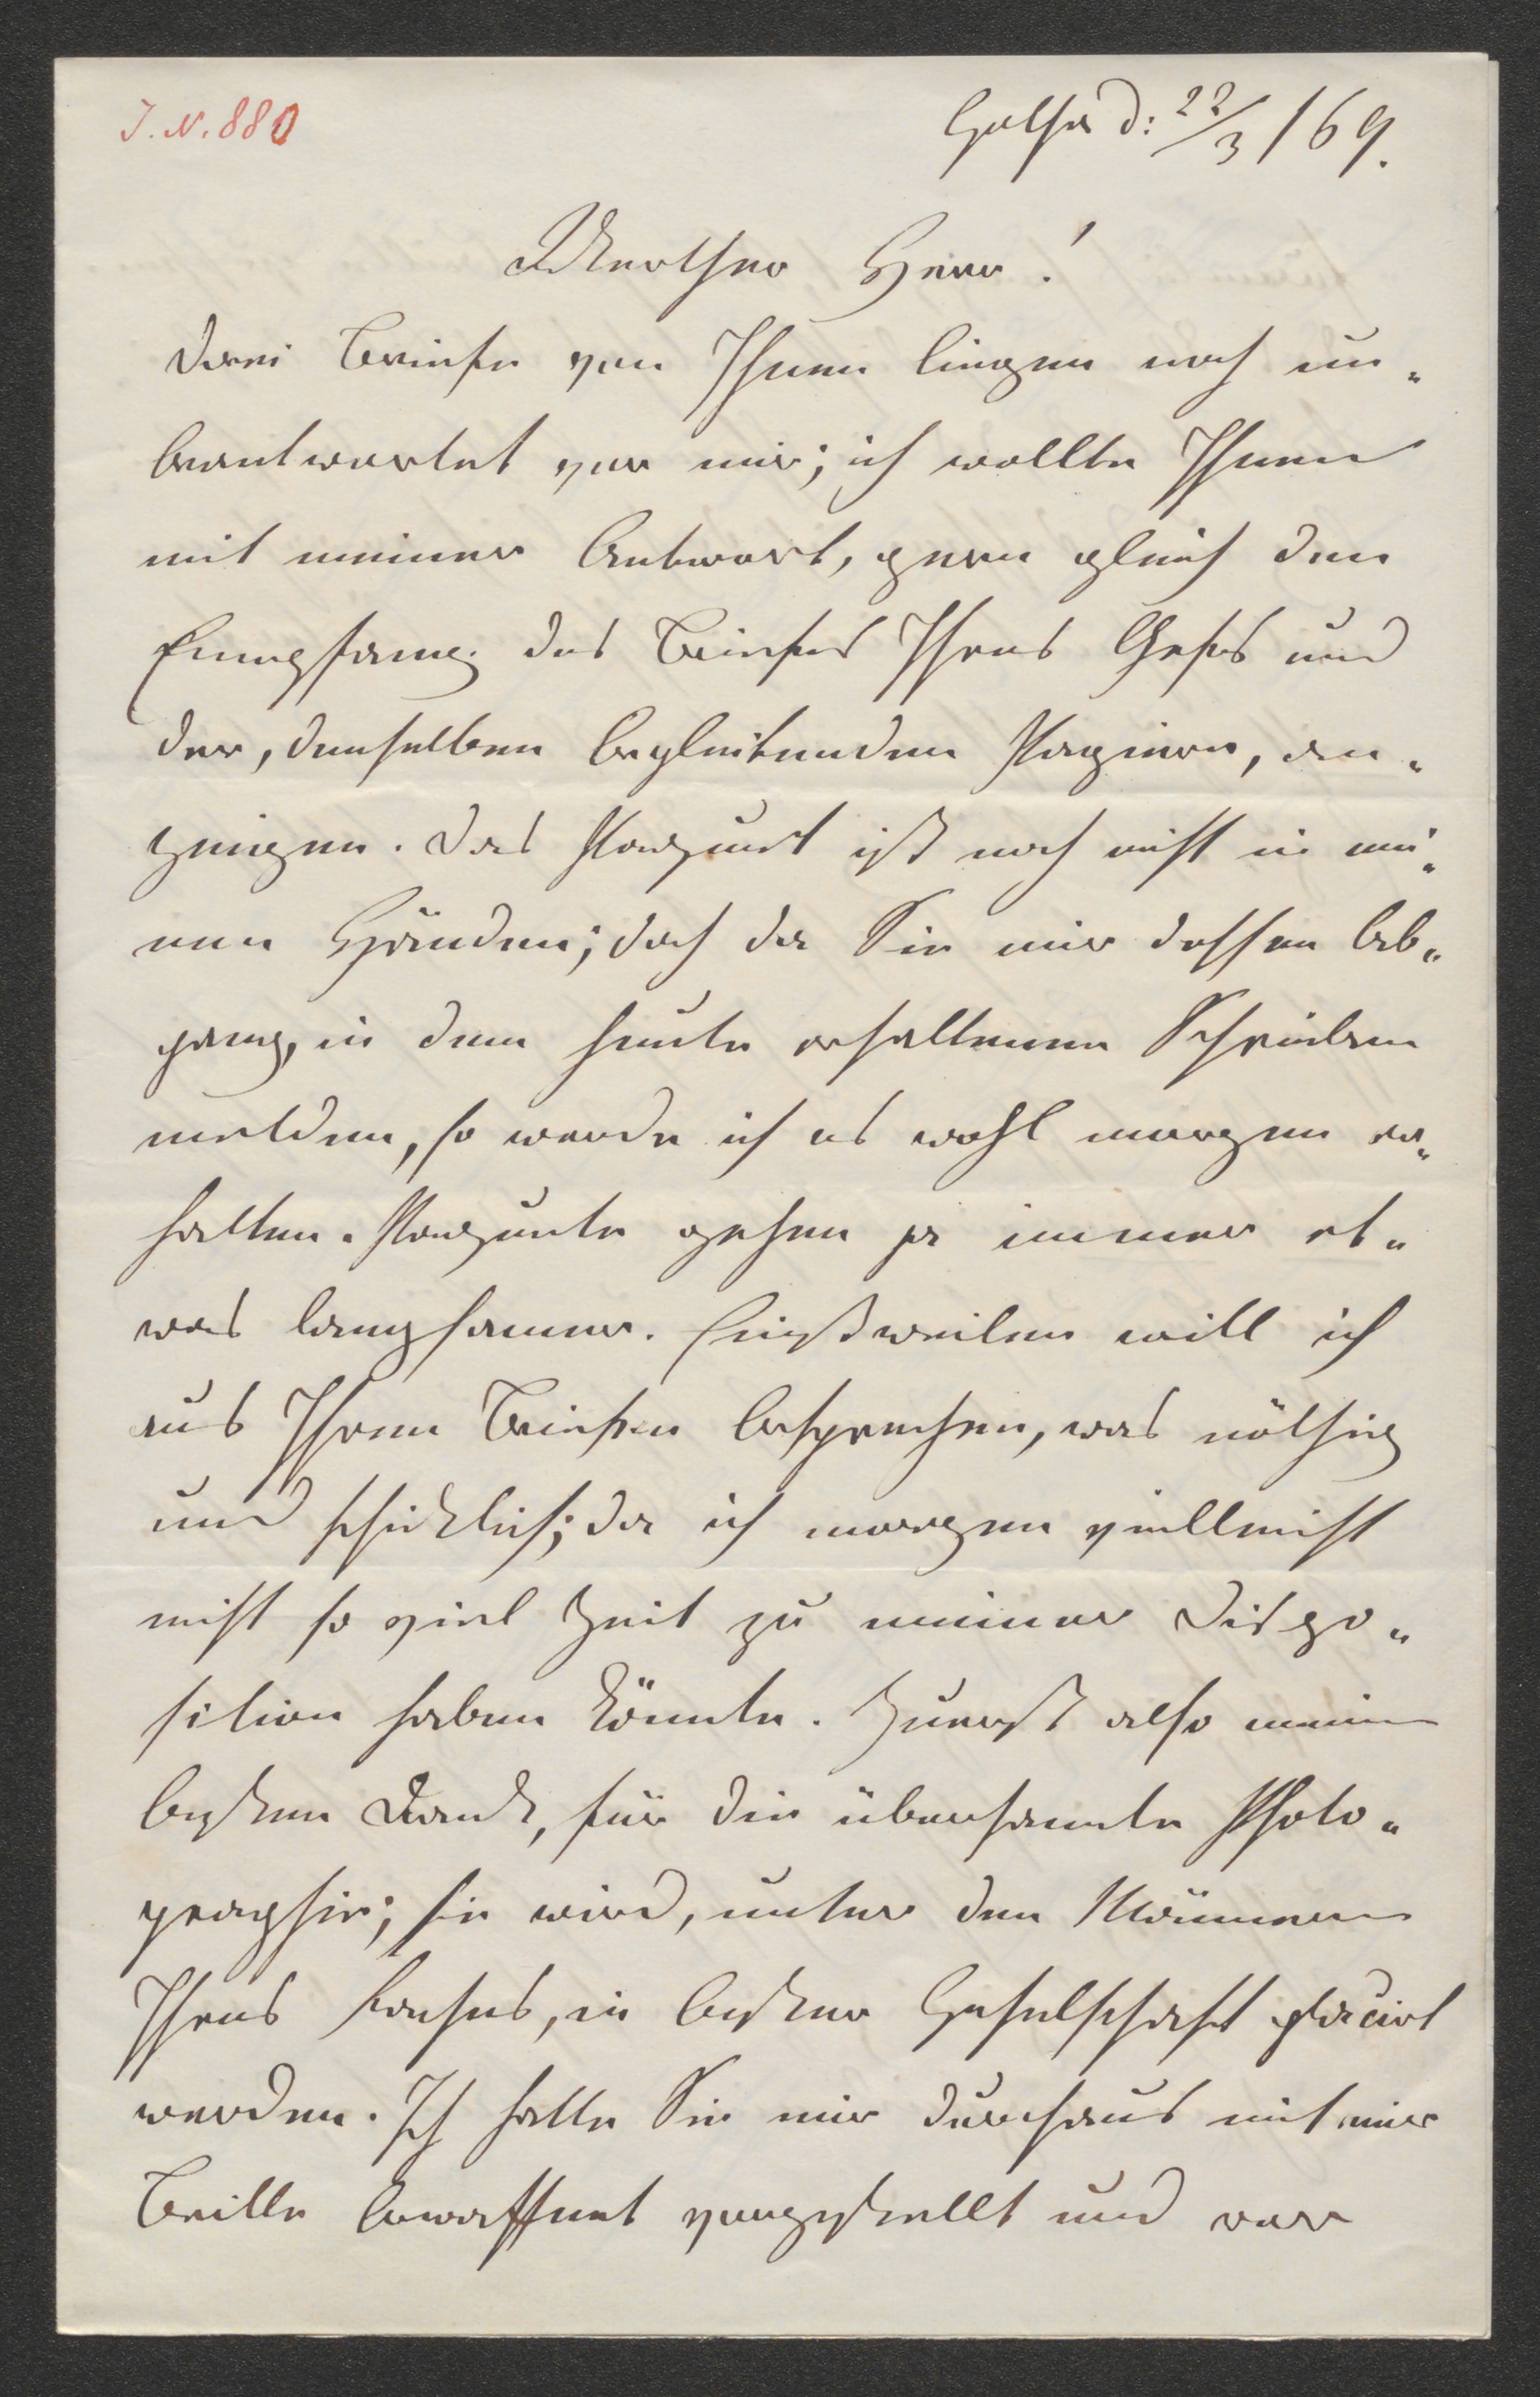 J. N. 880
Gotha d: 22/3/69.
Werther Herr!
Drei Briefe von Ihnen liegen noch un„
beantwortet vor mir; ich wollte Ihnen
mit meiner Antwort, gern gleich den
Empfang des Briefes Ihres Chefs und
der, denselben begleitenden Papiere, an„
zeigen. Das Packet ist noch nicht in mei„
nen Händen; doch da Sie mir dessen Ab„
gang, in dem heute erhaltenen Schreiben
melden, so werde ich es wohl morgen er„
halten. Packete gehen ja immer et„
was langsamer. Einstweilen will ich
aus Ihren Briefen besprechen, was nöthig
und schicklich; da ich morgen vielleicht
nicht so viel Zeit zu meiner Dispo„
sition haben könnte. Zuerst also meinen
besten Dank, für die übersandte Photo„
graphie; sie wird, unter den Männern
Ihres Faches, in bester Gesellschaft placirt
werden. Ich hatte Sie mir durchaus mit einer
Brille bewaffnet vorgestellt und war